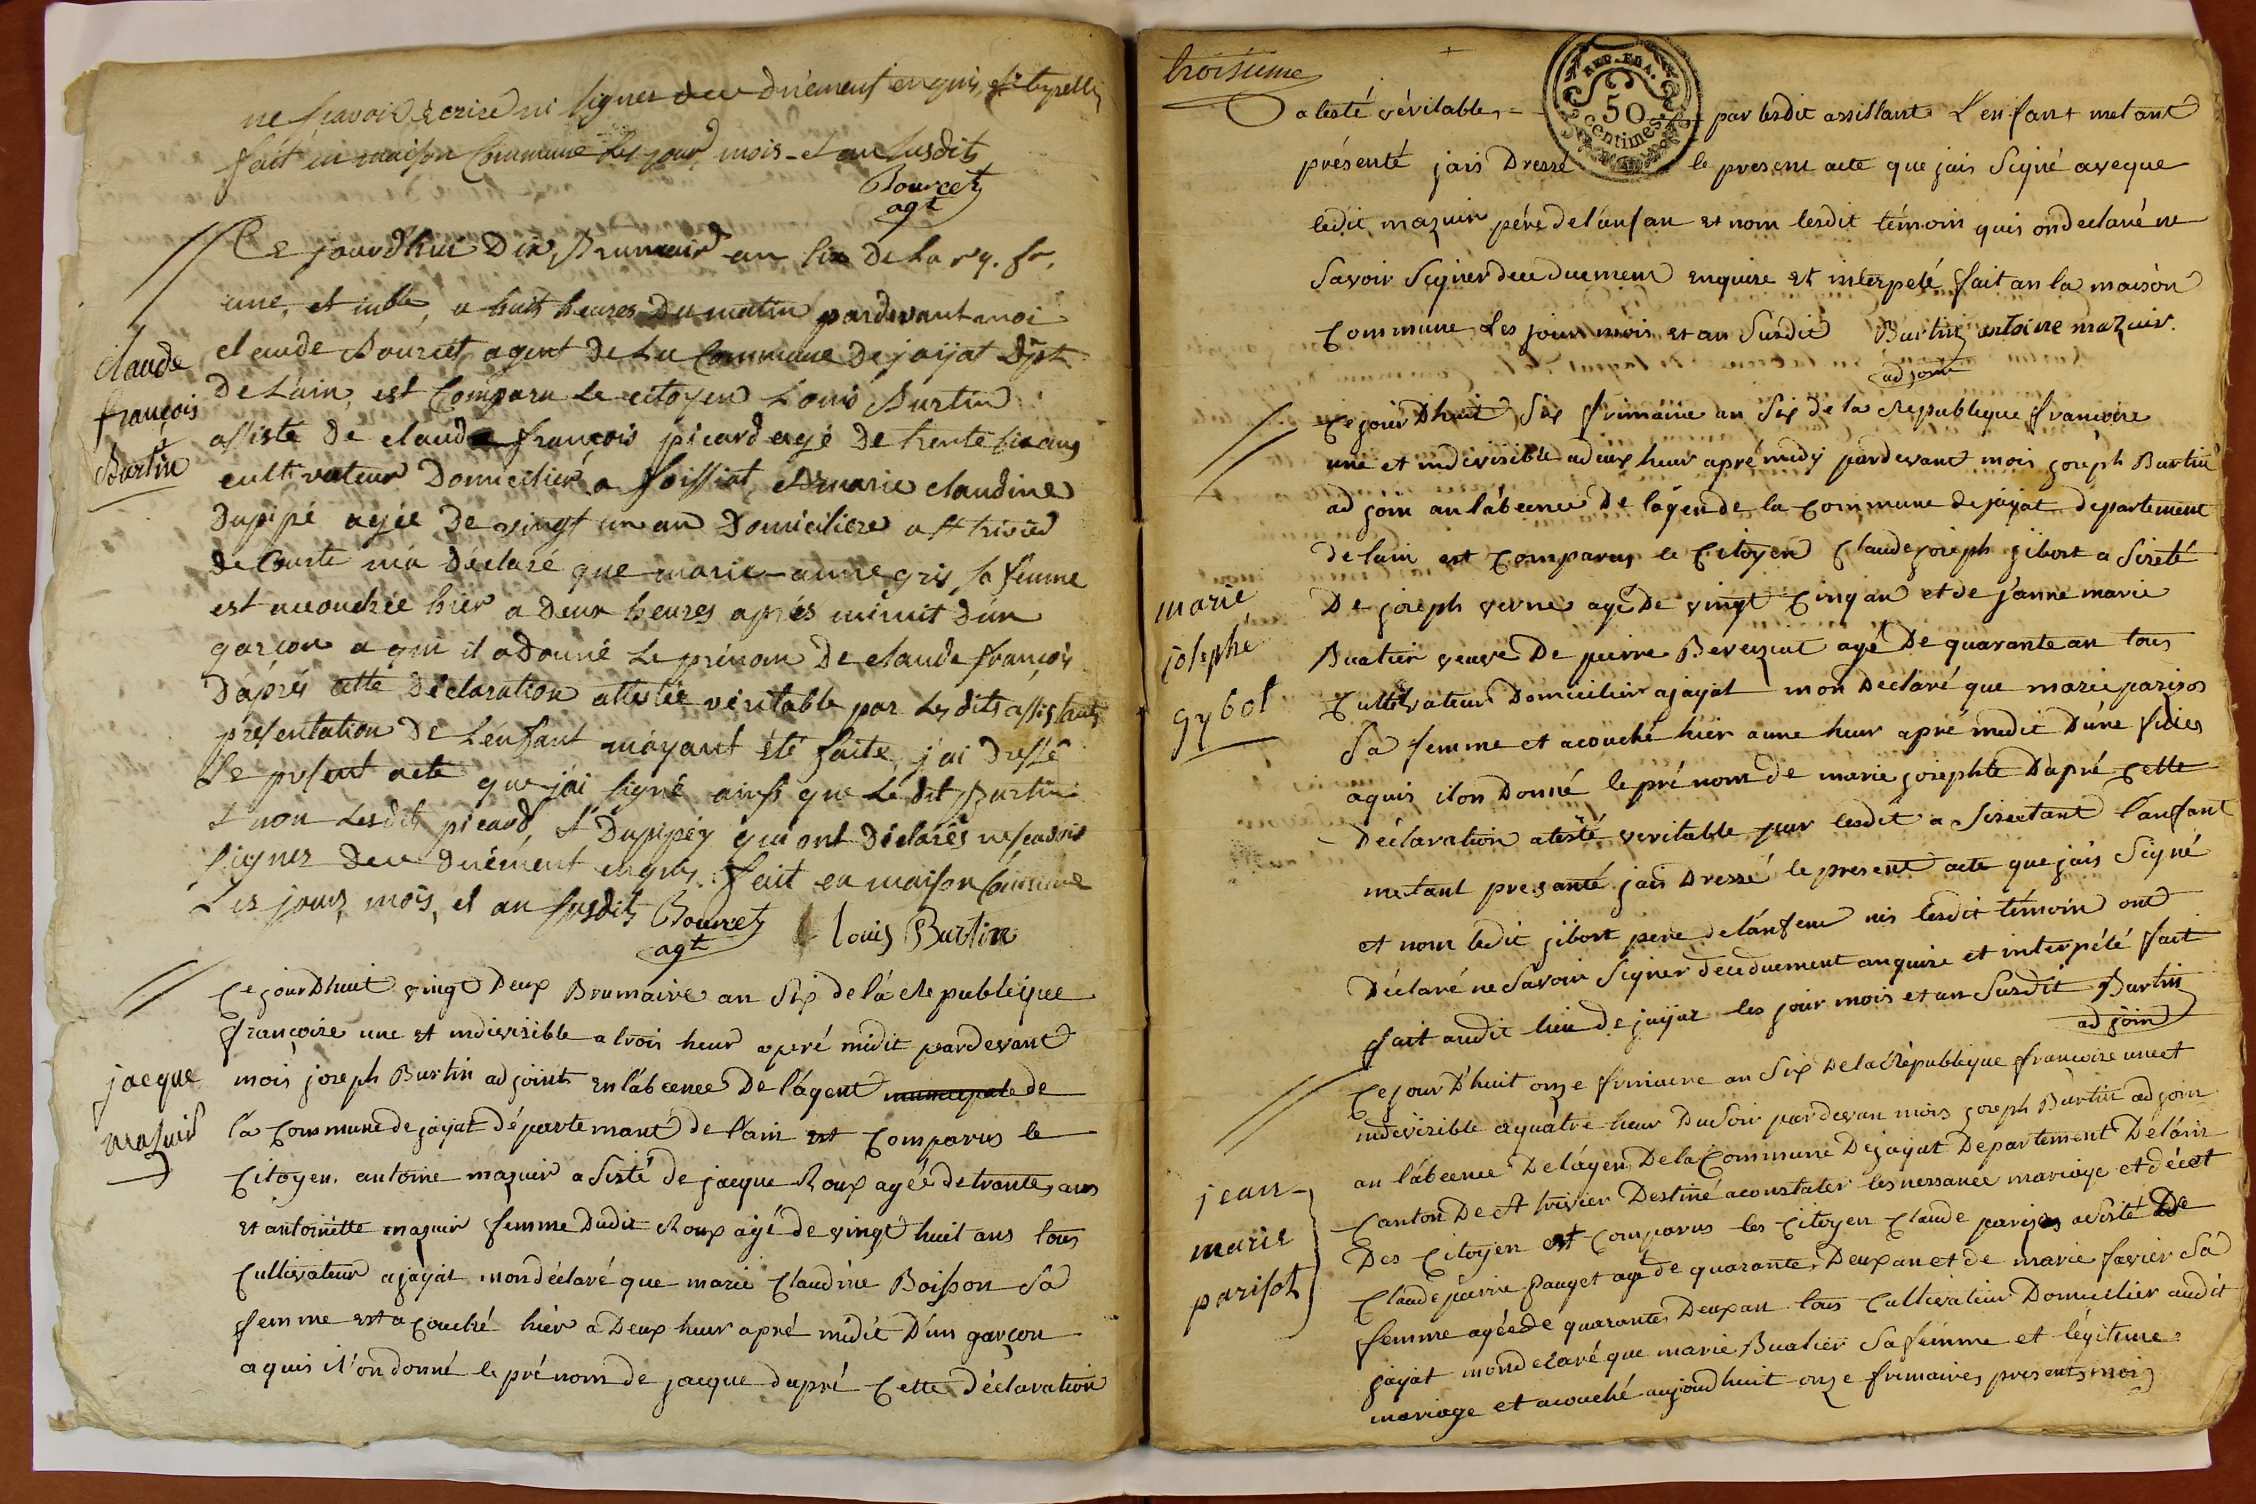 ne sçavoir écrire ni signer de ce duement enquis et interpellés
fait en maison Commune les jour mois et an susdits
Bourcet
agt
Ce jourd'hui Dix Brumaire an six De La rep. fr.
une, et indble, a huit heures Du matin pardevant moi
claude Bourcet agent De La Commune De jayat dpt
De L'ain, est Comparu Le citoyen Louis Burtin
assisté De claude françois picard agé De trente six ans
cultivateur Domicilié a foissiat, et marie claudine
Dupipé agée De vingt un an Domiciliere a St trivier
De Courte m'a Déclaré que marie-anne gris, sa femme
est accouchée hier a Deux heures aprés minuit d'un
garçon a qui il a donné Le prénom De claude françois
D'aprés cette Déclaration attestée véritable par Les dits assistants
présentation De L'enfant m'ayant été faite, j'ai dressé
Le present acte que j'ai signé ainsi que Le dit Burtin
& non Lesdits picard, & Dupipéz qui ont Déclarés ne scavoir
signer De ce Duément enquis. fait en maison Commune
Les jour, mois, et an susdits Bourcet Louis Burtin
agt
claude
françois
Burtin
Ce jourDhuit vingt Deux Brumaire an Six de la Republique
françoise une et indivisible a trois heur apré midit pardevant
mois joseph Burtin adjoint en l'abcence De l'agent municipale de
la Commune de jayat département de l'ain est Comparus le
Citoyen antoine mazuir asisté de jacque Roux agéé de trante ans
et antoinette mazuir femme Dudit Roux agé de vingt huit ans tous
Cultivateur a jayat mon déclaré que marie Claudine Boisson Sa
femme est acouché hiér a Deux heur apré midit D'un garçon
aquis il'on donné le prénom de jacque dapré Cette déclaration
jacque
mazuir
troisieme
REP. FRA.
50
centimes
atesté véritable, par lesdit assistant L'enfant metant
présenté jais Dressé le present acte que jais Signé aveque
ledit mazuir pére de l'anfan et nom lesdit témoin quis on declaré ne
Savoir Signer de ce duement enquire et interpelé fait an la maison
Commune Les jour mois et an Surdit Burtin antoine mazuir.
adjoint
Ce jour Dhuit Six frimaire an Six de la Republique francoire
une et indivisible a deux heur apré midy pardevant mois joseph Burtin
adjoin an lábcence De lágen de la Commune de jayat departement
de lain est Comparus le Citoyen Claude joseph jibort a Sisté
De joseph verne agé De vingt Cinq an et de janne marie
Buatier veuve De pierre Bereziat agé De quarante an tous
Cultivateur Domicilier a jayat mon Declaré que marie parizos
Sa femme et acouché hier a une heur apré midit D'une fillies
aquis il on Donné le pré nom de marie josephte Dapré Cette
Déclaration atesté veritable par lesdit a Sisestant l'anfant
metant presanté jais Dressé le present acte que jais Signé
et nom ledit jibort pere de lánfene nis lesdit témoin ont
Déclaré ne Savoir Signer de ce duement anquire et interpélé fait
fait audit lieu de jayat les jour mois et an Surdit Burtin
adjoin
marie
josephe
gybot
Ce jour D'huit onze frimaire an Six De la République francoire une et
indivizible a quátre heur Du Soir par devan mois joseph Burtin adjoin
an lábcence De lágen De la Commune De jayat Departement De láin
Canton De St trivier Destiné a constater les nessance mariage et décet
Des Citoyen est Comparus les Citoyen Claude parizos asisté De
Claude pierre pauget agé de quarante Deux an et de marie favier Sa
femme agée de quarante Deux an tous Cultivateur Domicilier audit
jayat mon declaré que marie Buatier Sa femme et légitime
mariage et acouché aujourdhuit onze frimaires present mois
jean
marie
parisot